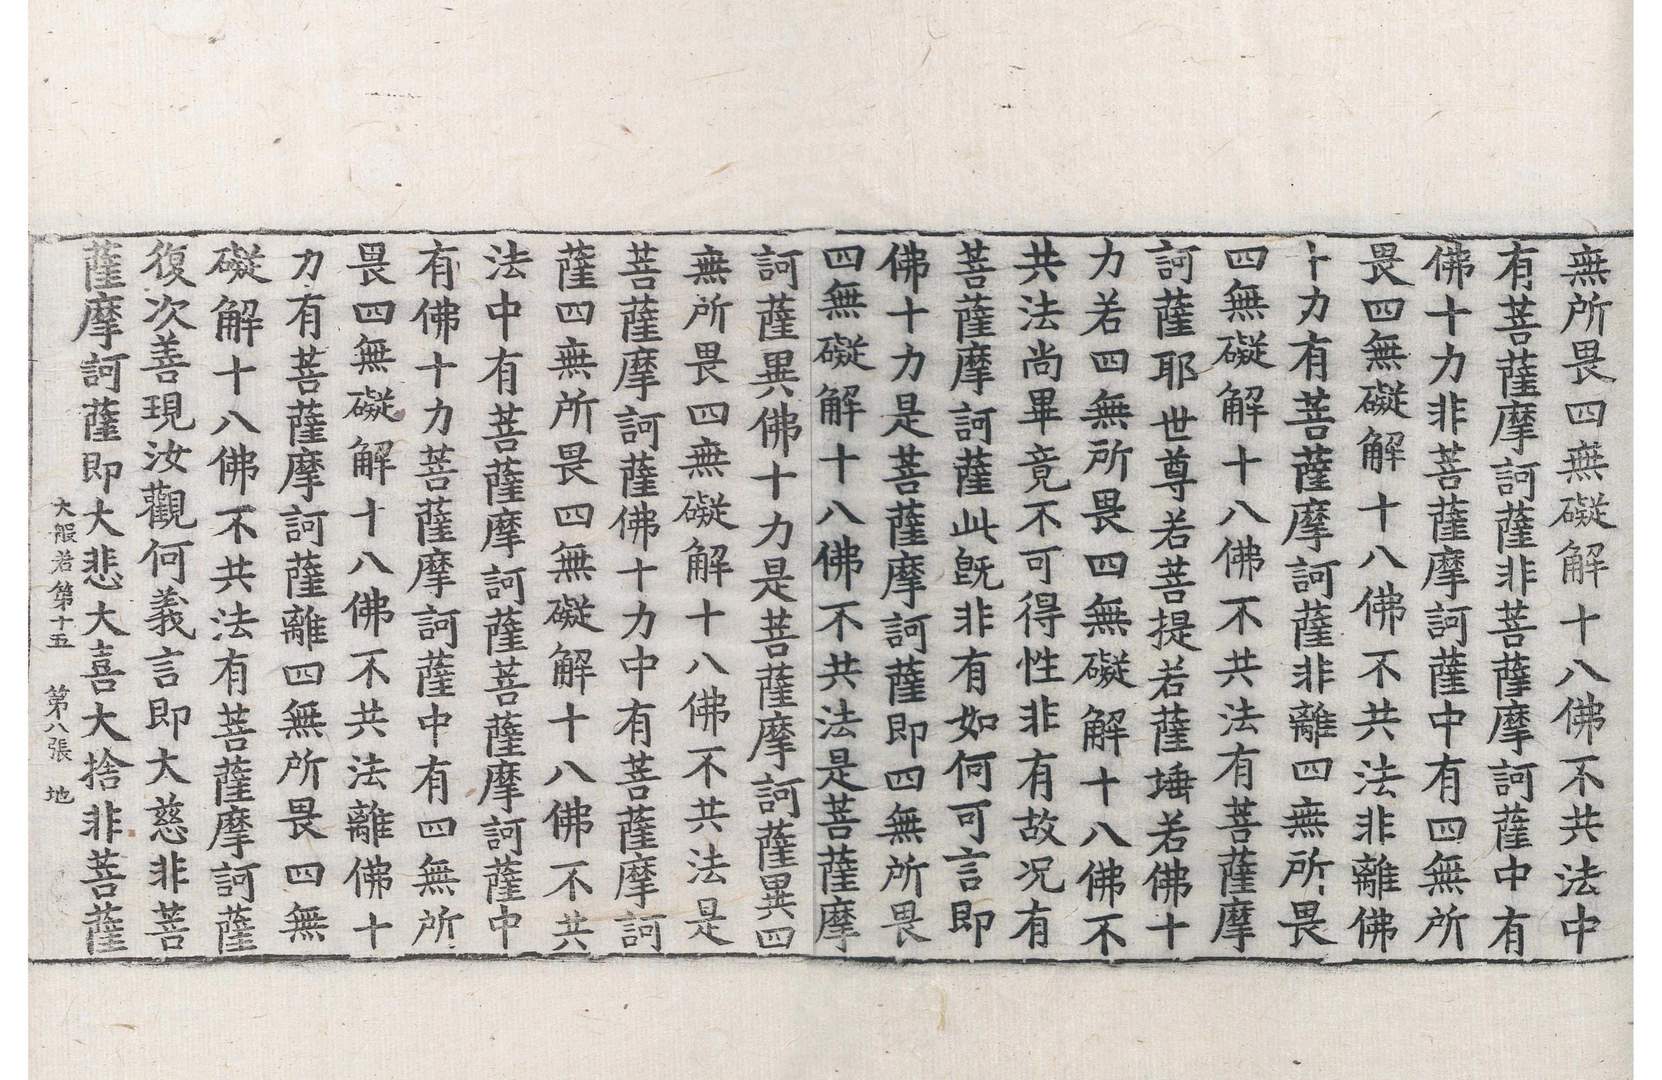 無所畏四無礙解十八佛不共法中
有菩薩摩訶薩非菩薩摩訶薩中有
佛十力非菩薩摩訶薩中有四無所
畏四無礙解十八佛不共法非離佛
十力有菩薩摩訶薩非離四無所畏
四無礙解十八佛不共法有菩薩摩
訶薩耶世尊若菩提若薩埵若佛十
力若四無所畏四無礙解十八佛不
共法尚畢竟不可得性非有故況有
菩薩摩訶薩此旣非有如何可言即
佛十力是菩薩摩訶薩即四無所畏
四無礙解十八佛不共法是菩薩摩
訶薩異佛十力是菩薩摩訶薩異四
無所畏四無礙解十八佛不共法是
菩薩摩訶薩佛十力中有菩薩摩訶
薩四無所畏四無礙解十八佛不共
法中有菩薩摩訶薩菩薩摩訶薩中
有佛十力菩薩摩訶薩中有四無所
畏四無礙解十八佛不共法離佛十
力有菩薩摩訶薩離四無所畏四無
礙解十八佛不共法有菩薩摩訶薩
復次善現汝觀何義言即大慈非菩
薩摩訶薩即大悲大喜大捨非菩薩
大般若第十五 第八張 地